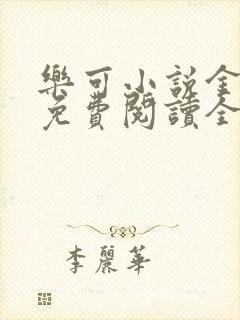 樂可小說全
免費閱讀全
李麗華